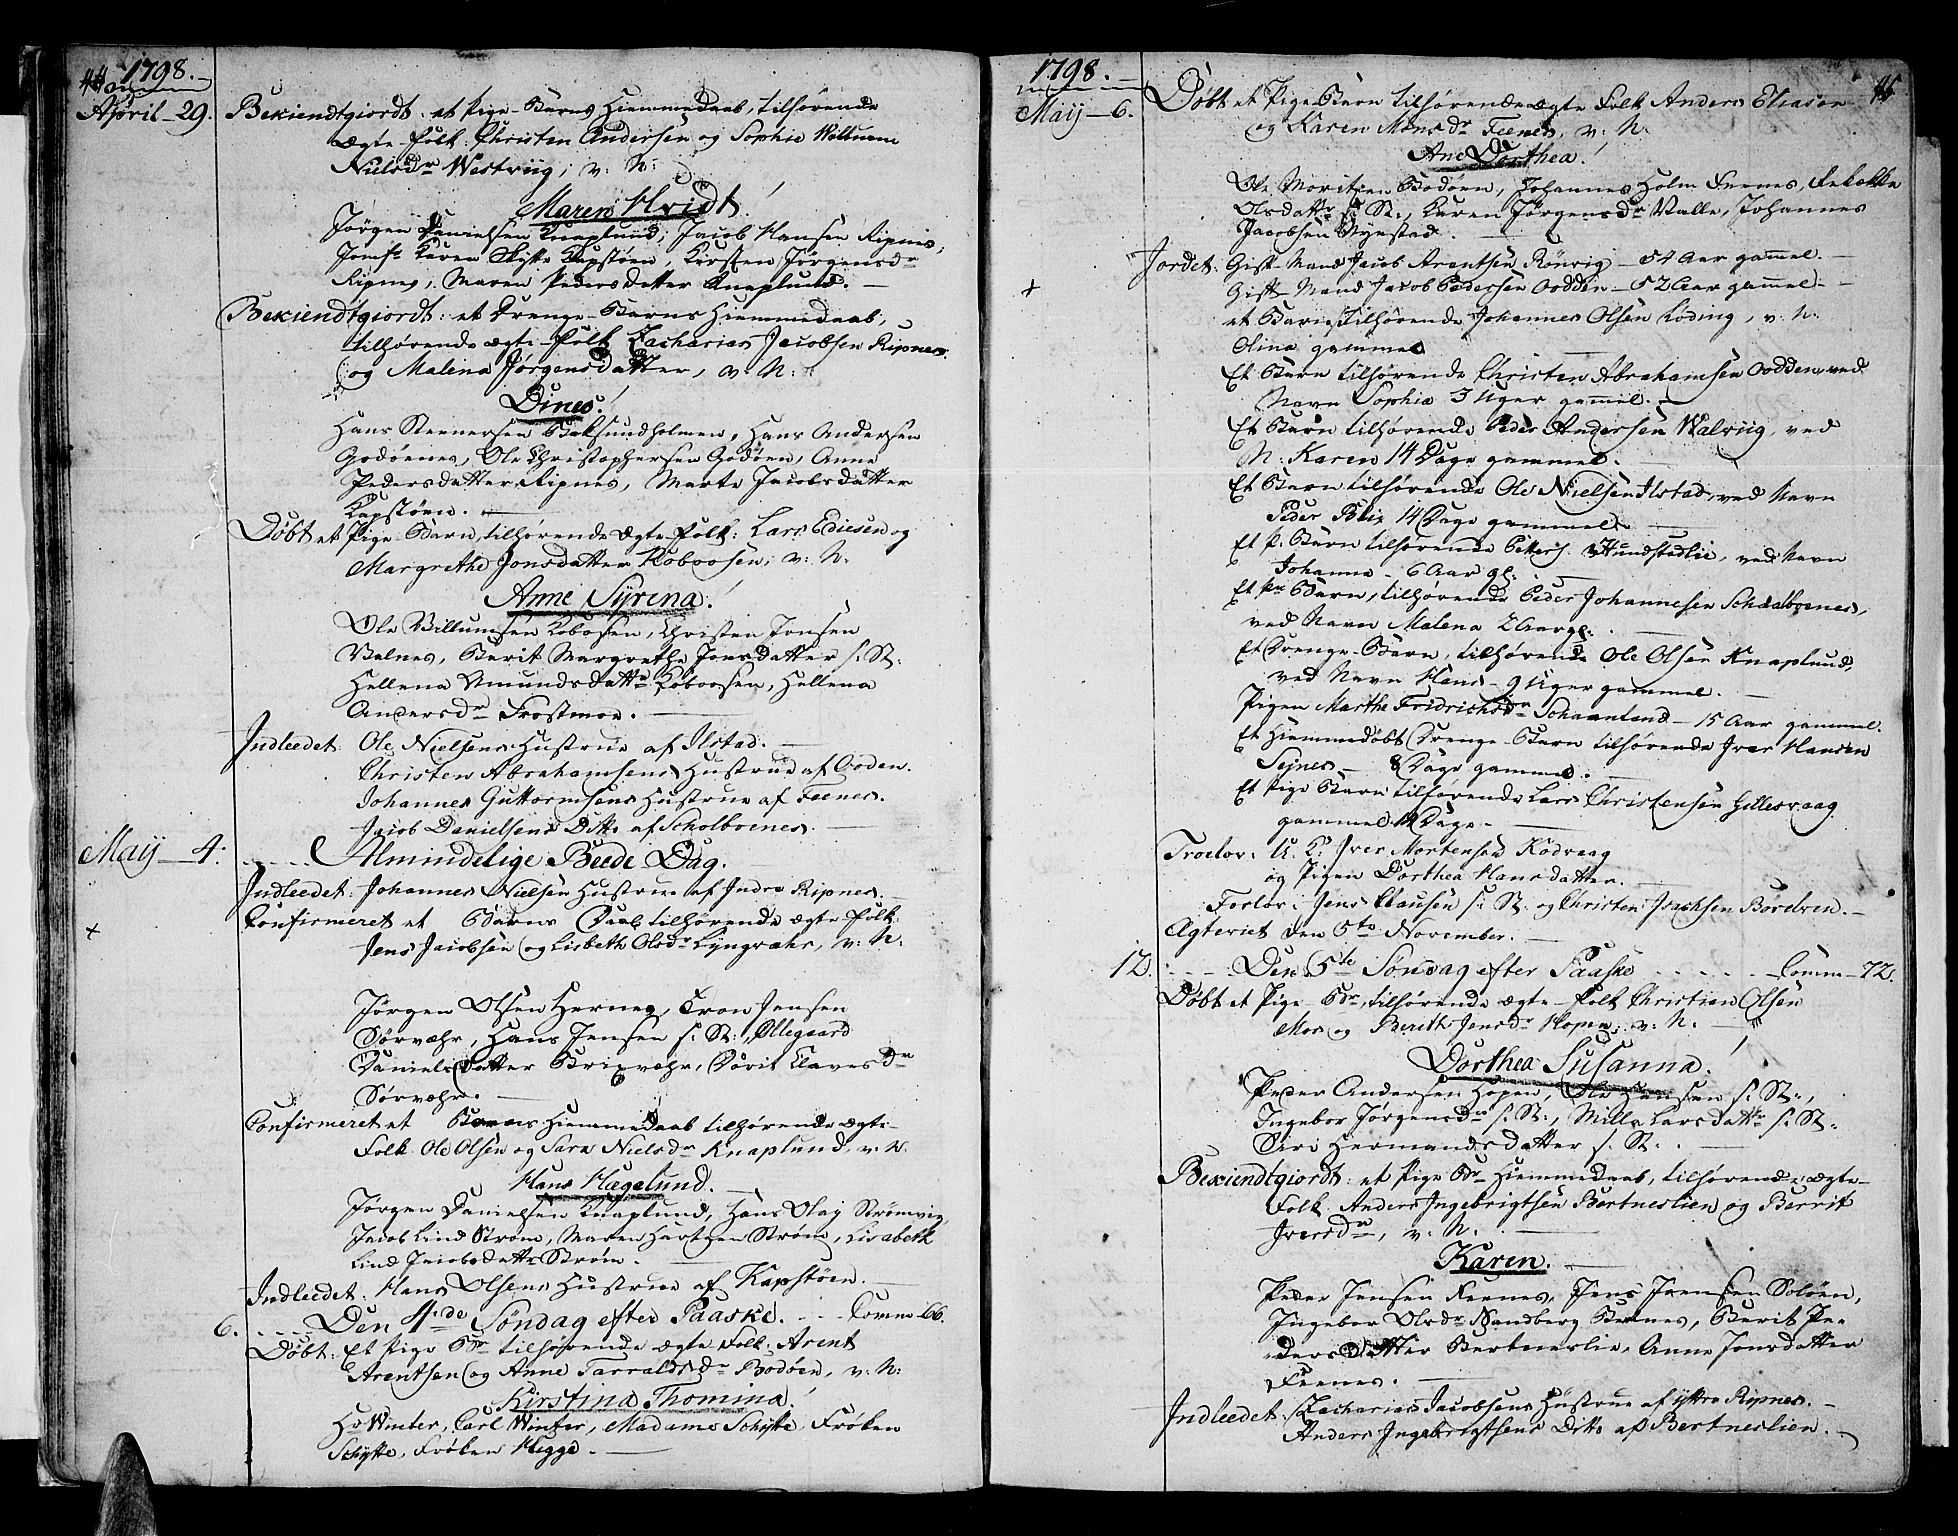 44
1798.
April 29. Bekiendtgiordt: et Pige-Barns Hiemmedaab, tilhørende
ægte-Folk: Christen Andersen og Sophia
Nielsdr Westviig, v. N:
Maren Hvidt!
Jørgen Danielsen Knaplund, Jacob Hansen Ripnes,
Jomfr Karen Schytte Kapstøen, Kirsten Jørgensdr
Ripnes, Maren Pedersdatter Knaplund.
Bekiendtgiordt: et Drenge-Barns Hiemmedaab,
tilhørende ægte-Folk Zacharias Jacobsen Ripnes
og Malena Jørgensdatter, v. N:
Dines!
Hans Steenersen Bøksundholmen, Hans Andersen
Godøenes, Ole Christophersen Godøen, Anne
Pedersdatter Ripnes, Marte Jacobsdatter
Kapstøen.
Døbt et Pige-Barn tilhørende ægte-Folk: Lars Ediesen og
Margrethe Jonsdatter Koboosen, v. N.
Anne Syrena!
Ole Villumsen Kobosen, Christen Jonsen
Valnes, Berit Margrethe Jonsdatter s: St:
Hellena Amundsdattr Koboosen, Hellena
Andersdr Frostmoe.
Indleedet: Ole Nielsens Hustrue af Ilstad.
Christen Abrahamsens Hustrue af Odden.
Johannes Guttormsens Hustrue af Feenes.
Jacob Danielsens Ditto af Scholboenes.
Maij 4. Almindelige Beede Dag.
Indleedet: Johannes Nielsen Hustrue af Indre Ripnes.
Confirmeret et Barns Daab tilhørende ægte Folk:
Jens Jacobsen og Lisbeth Olsdr Lyngvæhr, v. N.
Jørgen Olsen Hernes, Tron Jensen
Sørvæhr, Hans Jensen s: St:, Ollegaard
Danielsdatter Brixvæhr, Dorit Clavesdr
Sørvæhr.
Confirmeret et Barns Hiemmedaab tilhørende ægte
Folk Ole Olsen og Sara Nielsdr Knaplund, v. N.
Hans Hagelund.
Jørgen Danielsen Knaplund, Hans Olay Strømvig,
Jacob Lind Strøm, Maren Hartzen Strøm, Lisabeth
Lind Jacobsdattr Strøm.
Indleedet: Hans Olsens Hustrue af Kapstøen.
6. Den 4de Søndag efter Paaske. Comm 66.
Døbt: Et Pige Br tilhørende ægte Folk: Arent
Arentsen og Anne Tarraldsdr Bodøen, v. N:
Kirstina Thomina!
Hr Winter, Carl Winter, Madame Schytte, Frøken
Schytte, Frøken Hegge.
45
1798.
Maij 6. Døbt et Pige Barn tilhørende ægte Folk Anders Eliason
og Karen Monsdr Feenes, v: N:
Ane Dorthea!
Ole Moritzen Bodøen, Johannes Holm Feenes, Rebekka
Olsdattr s: St:, Karen Jørgensdr Valle, Johannes
Jacobsen Nystad.
Jordet: Gift-Mand Jacob Arentsen Rønvig 54 Aar gammel.
Gift Mand Jacob Pedersen Oodden 52 Aar gammel.
et Barn tilhørende Johannes Olsen Løding, v. N:
Olina gammel
Et Barn tilhørende Christen Abrahamsen Oodden, ved
Navn Sophia 3 Uger gammel.
Et Barn tilhørende Peder Andersen Walviig, ved
N: Karen 14 Dage gammel.
Et Barn tilhørende Ole Nielsen Ilstad, ved Navn
Peder Blix 14 Dage gammel.
Et P. Barn tilhørende Peders. Hundstadlie, ved Navn
Johanna 6 Aar gl:
Et Barn, tilhørende Peder Johannesen Schaalboenes,
ved Navn Malena 2 Aar gl:
Et Drenge-Barn, tilhørende Ole Olsen Knaplund,
ved Navn Hans 9 Uger gammel.
Pigen Marthe Fridrichsdr Schaanland 15 Aar gammel.
Et Hiemmedøbt Drenge-Barn tilhørende Iver Hansen
Seines 8 Dage gammel.
Et Pige Barn tilhørende Lars Christensen Gillesvaag
gammel 12 Dage.
Troelov: U. K: Iver Mortensen Kodvaag
og Pigen Dorthea Hansdatter.
Forlov: Jens Clausen s: St: og Christen Isachsen Børelven.
Ægteviet den 5te November.
12. Den 5te Søndag efter Paaske Comm 72.
Døbt et Pige-Br, tilhørende ægte-Folk Christian Olsen
Moe og Berith Jensdr Hopen, v: N.
Dorthea Susanna!
Peder Andersen Hopen, Ole Hansen s: St:,
Ingebor Jørgensdr s: St:, Mille Larsdattr s: St:
Siri Hermandsdatter s: St:
Bekiendtgiordt: et Pige Br Hiemmedaab, tilhørende ægte
Folk: Anders Ingebrigtsen Bertneslien og Berrit
Iversdr, v: N.
Karen.
Peder Jensen Feenes, Jens Iversen Soløen,
Ingebor Olsdr Sandberg Bernes, Berit Pe-
dersdatter Bertneslie, Anne Jonsdatter
Feenes.
Indleedet: Zacharias Jacobsens Hustrue af ÿttre Ripnes.
Anders Ingebrigtsens Ditto af Bertneslien.